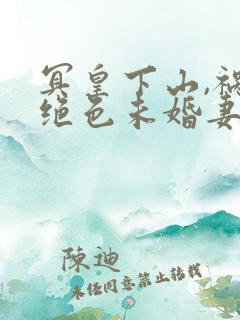 冥皇下山,祸
绝色未婚妻
陳迪
未任同意禁止转载